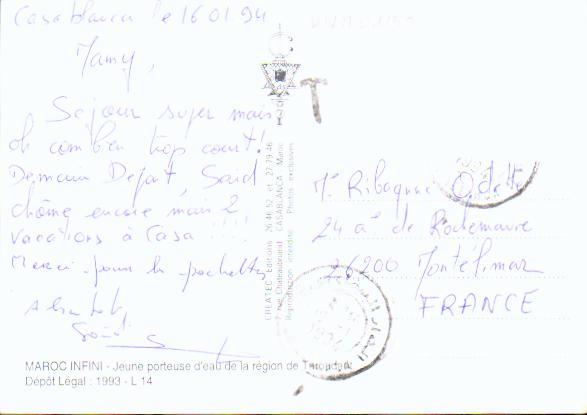 Casablanca le 16.01.94
Mamy,
Séjour super mais
oh combien trop court!
Demain Départ, Saïd
chôme encore mais 2
vacations à Casa !!!
Merci pour la pochette
A bientôt
T
CREATEC Editions 26.46.52 et 27.79.46
7, rue Chateaubriand CASABLANCA - Maroc
Reproduction interdite Photos exclusives
Mme Ribagnac Odette
24 de Rochemaure
26200 Montélimar
FRANCE
1994
MAROC INFINI - Jeune porteuse d'eau de la région de Tinoudat
Dépôt Légal : 1993 - L 14